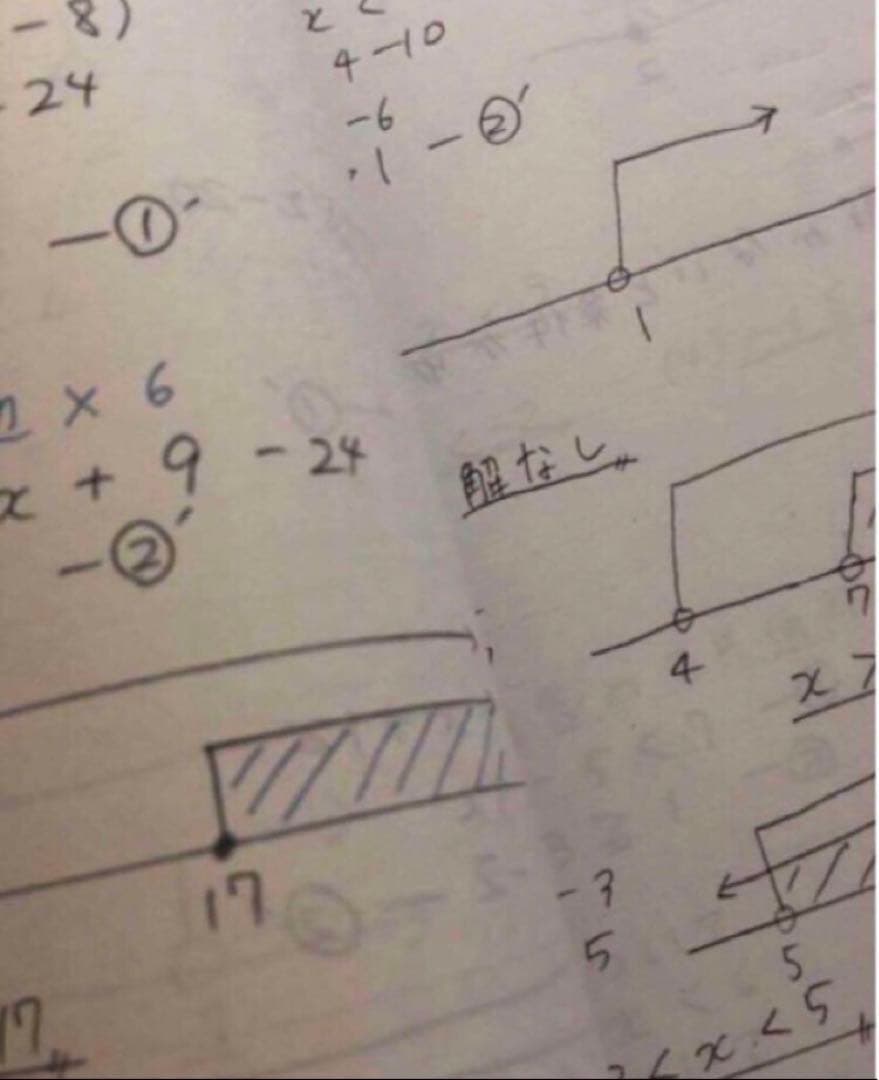 - 8)
24
- ①′
× 6
x + 9 - 24
- ②′
17
17
x <
4 -10
-6
1 - ②′
1
解なし
4
7
x 7
-3
5
5
< x < 5